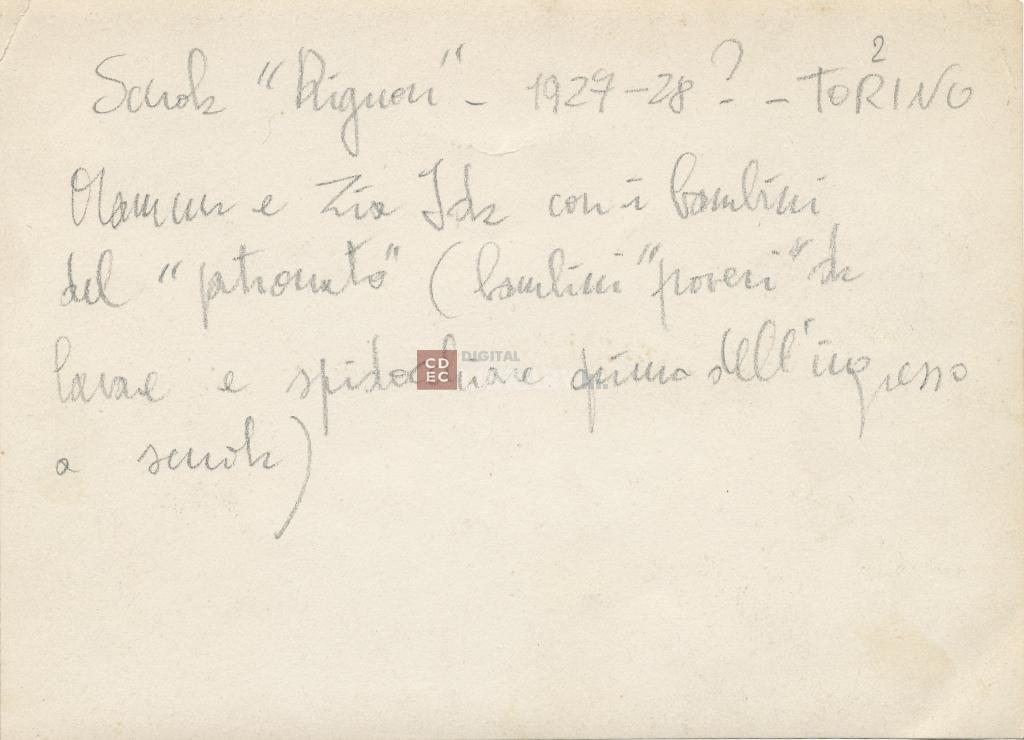 Scuola "Rignon" - 1927-28? - TORINO
2
Mamma e Zia Ida con i bambini
del "patronato" (bambini "poveri" da
lavare e spidocchiare prima dell'ingresso
a scuola)
CD EC DIGITAL